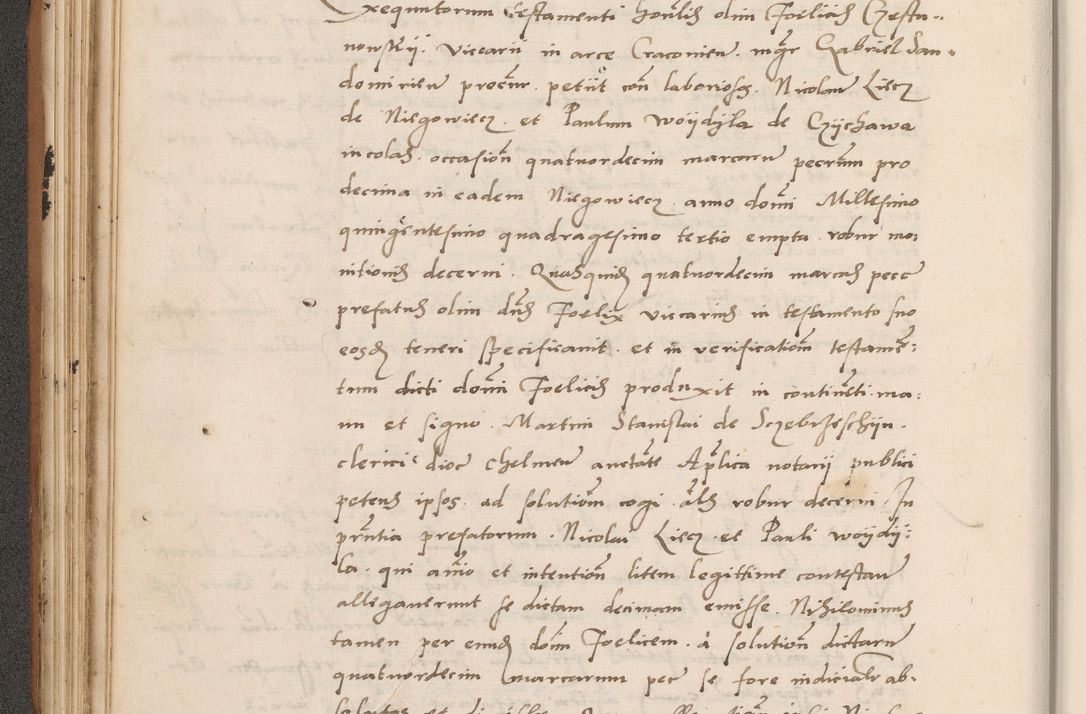 Exequutorum testamenti honlis olim Foelicis Czesta-
nowskij. viccarii in arce Cracovien. mgr Gabriel San-
domirien procur. petiit con laboriosos. Nicolaum Liscz
de Niegowiecz. et Paulum Woijdijla de Czijchawa
incolas. occasion quatuordecim marcarum pecum pro
decima in eadem Niegowiecz. anno domi Millesimo
quingentesimo quadragesimo tertio empta. robur mo-
nitionis decerni. Quasquidem quatuordecim marcas pecc
prefatus olim dns Foelix viccarius in testamento suo
eosdem teneri specificavit. et in verification testamen-
tum dicti domi Foelicis produxit in continenti. ma-
nu et signo. Martini Stanislai de Sczebrzeschijn.
clerici dioc Chelmen auctate Aplica notarii publici
petens ipsos. ad solution cogi. als robur decerni. In
prntia prefatorum. Nicolai Liscz. et Pauli woijdij-
la. qui animo et intention litem legittime contestan
allegaverunt se dictam decimam emisse. Nihilominus
tamen per eundem domi Foelicem. a solution dictarum
quatuordecim marcarum pec se fore indicialr ab-